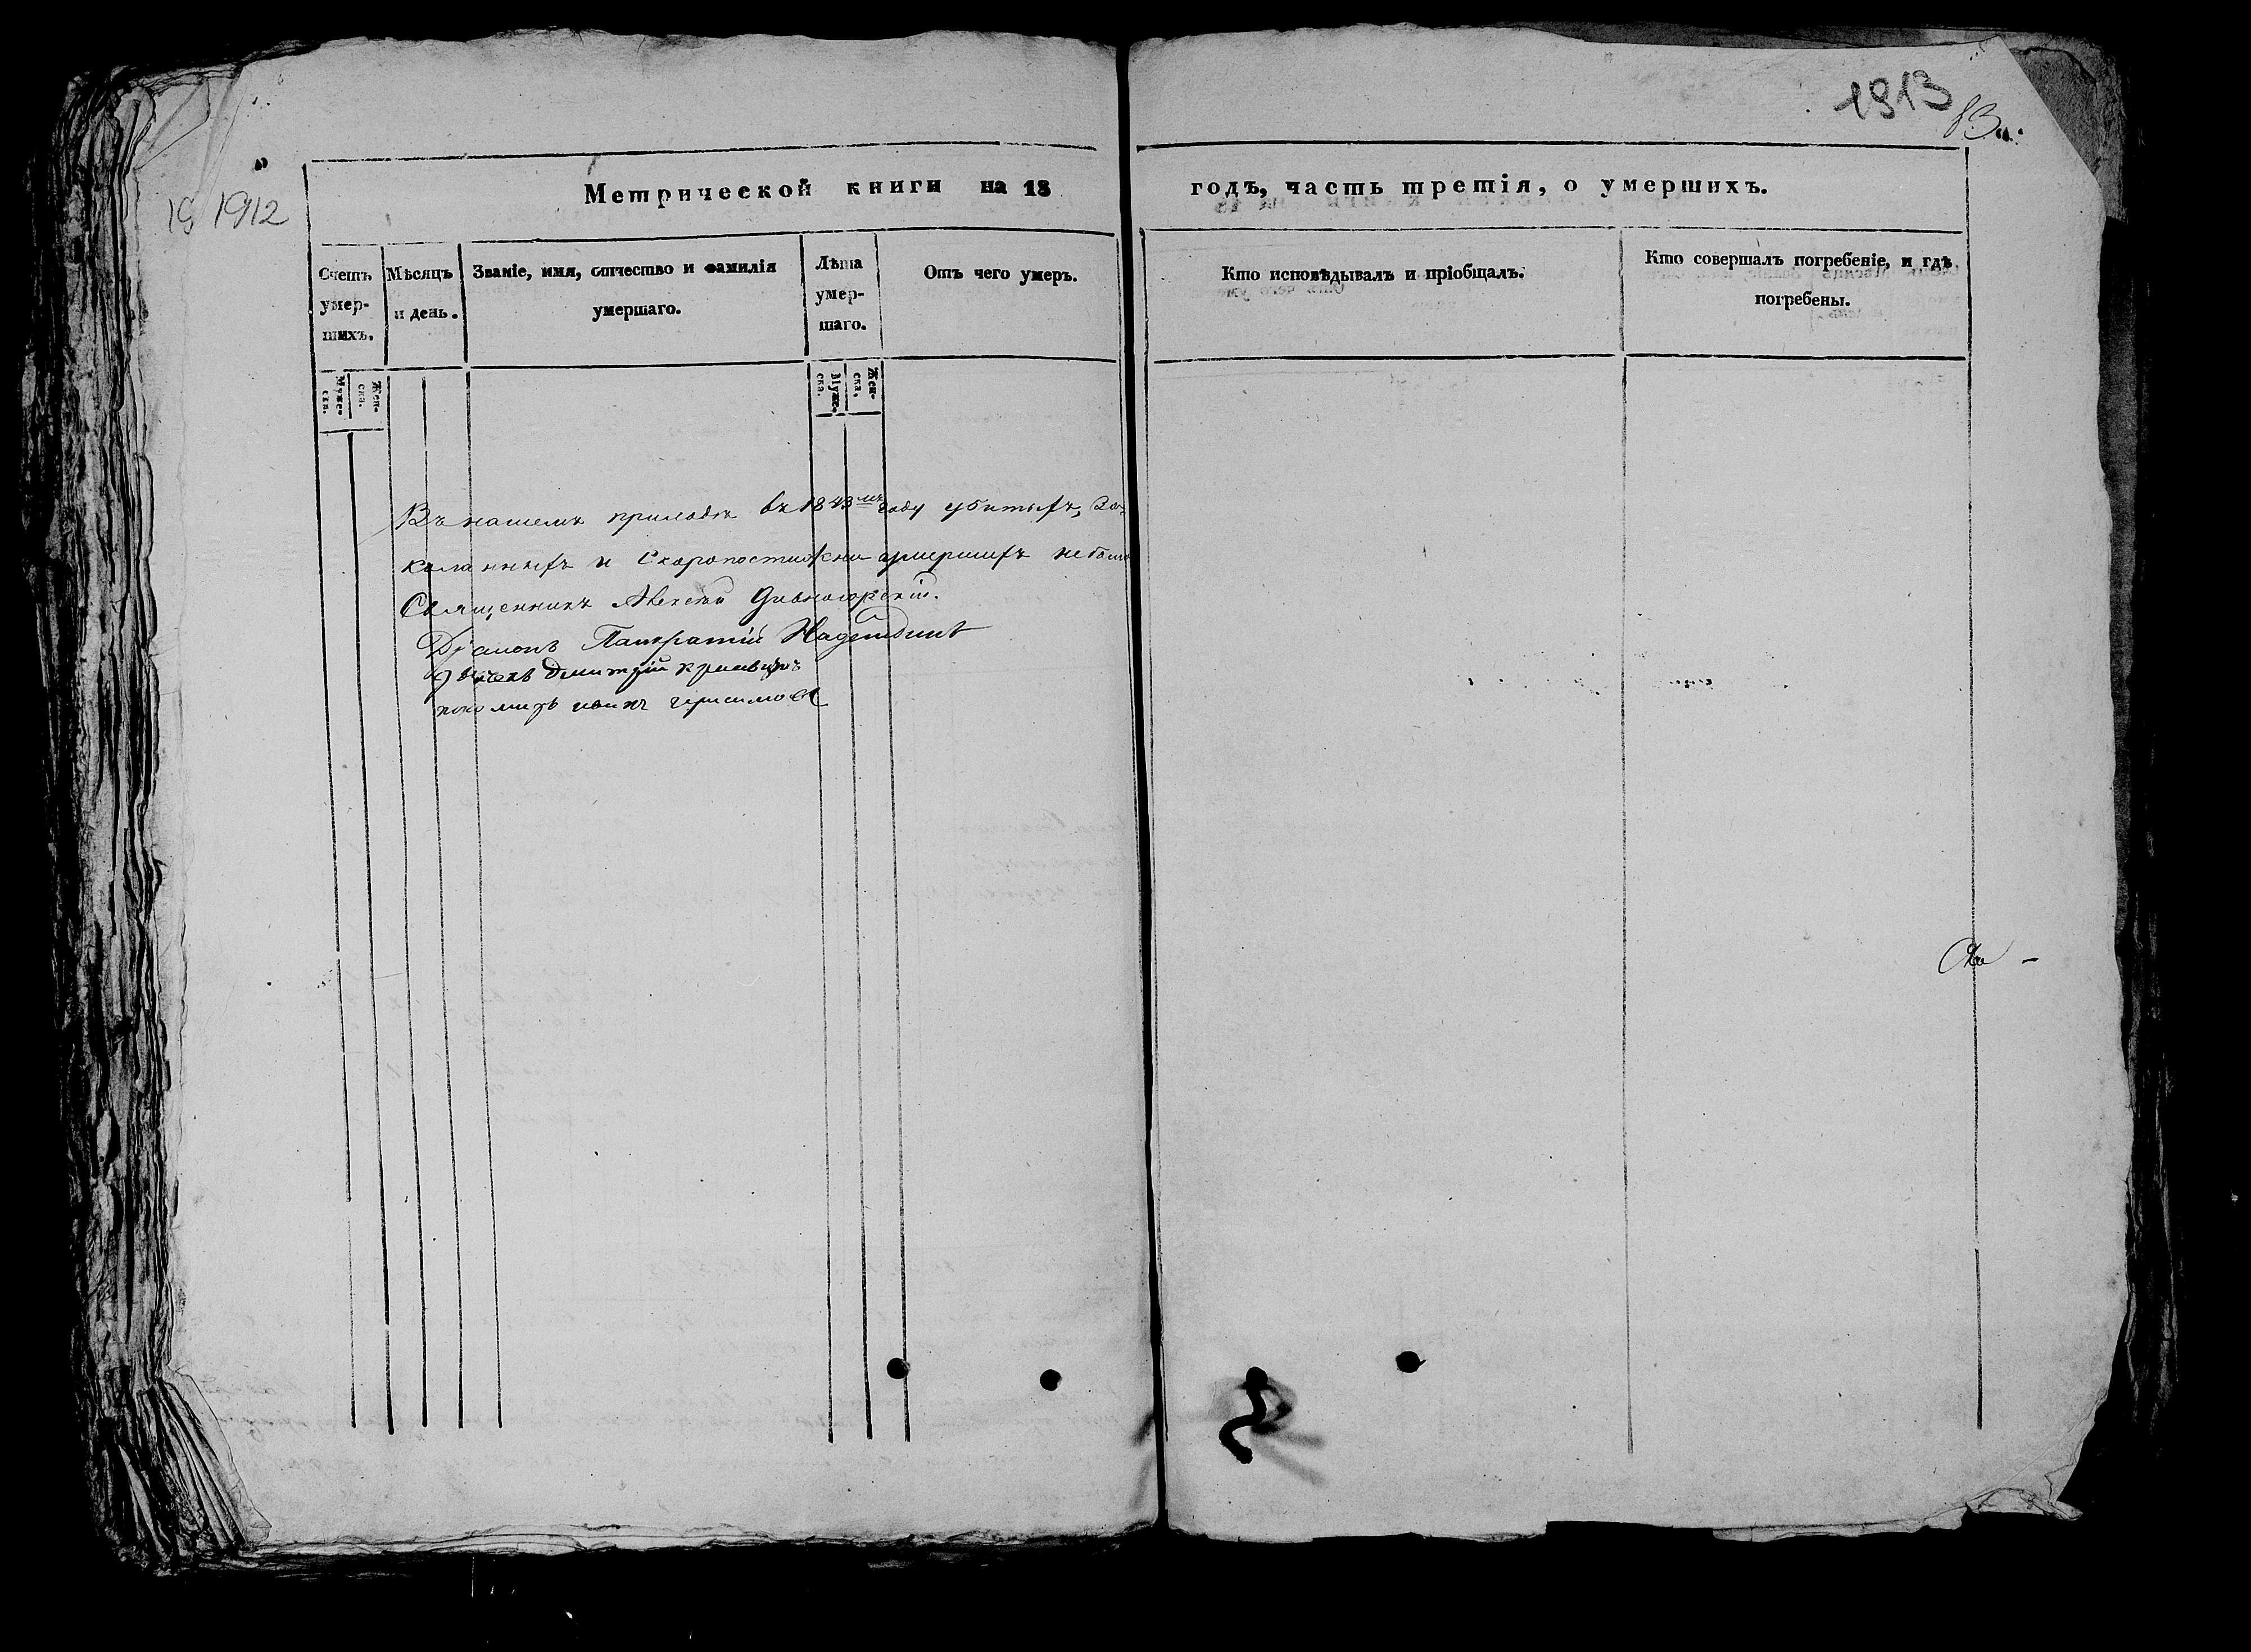 1913
83
19 1912
Метрической книги на 18 годъ, часть третія, о умершихъ.
Счетъ умершихъ.
Мѣсяцъ и день.
Званіе, имя, отчество и фамилія умершаго.
Лѣта умершаго.
Отъ чего умеръ.
Кто исповѣдывалъ и пріобщалъ.
Кто совершалъ погребеніе, и гдѣ погребены.
Мужеска.
Женска.
Мужеска.
Женска.
Въ нашемъ приходѣ въ 1843мъ году убитыхъ, За-
каланныхъ и Скоропостижно умершихъ не было
Священникъ Алексѣй Дивногорскій.
Діаконъ Панкратій Надеждинъ
Дьячекъ Дмитрій
пономарь иванъ герасимовъ